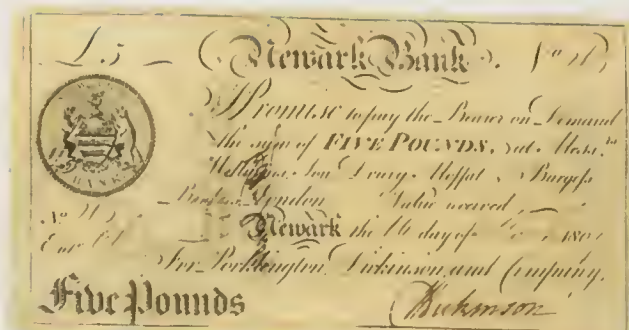 £5 Newark Bank. No
I PROMISE to pay the Bearer on Demand
the sum of FIVE POUNDS, at Messrs
Son Drury Moffat & Burgess
Bankers London Value received
BANK
No
Newark the 16 day of 180
Entd
For Pocklington Dickinson and Company.
Five Pounds Dickinson